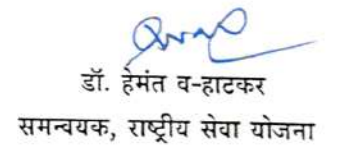 डॉ. हेमंत व-हाटकर
समन्वयक, राष्ट्रीय सेवा योजना